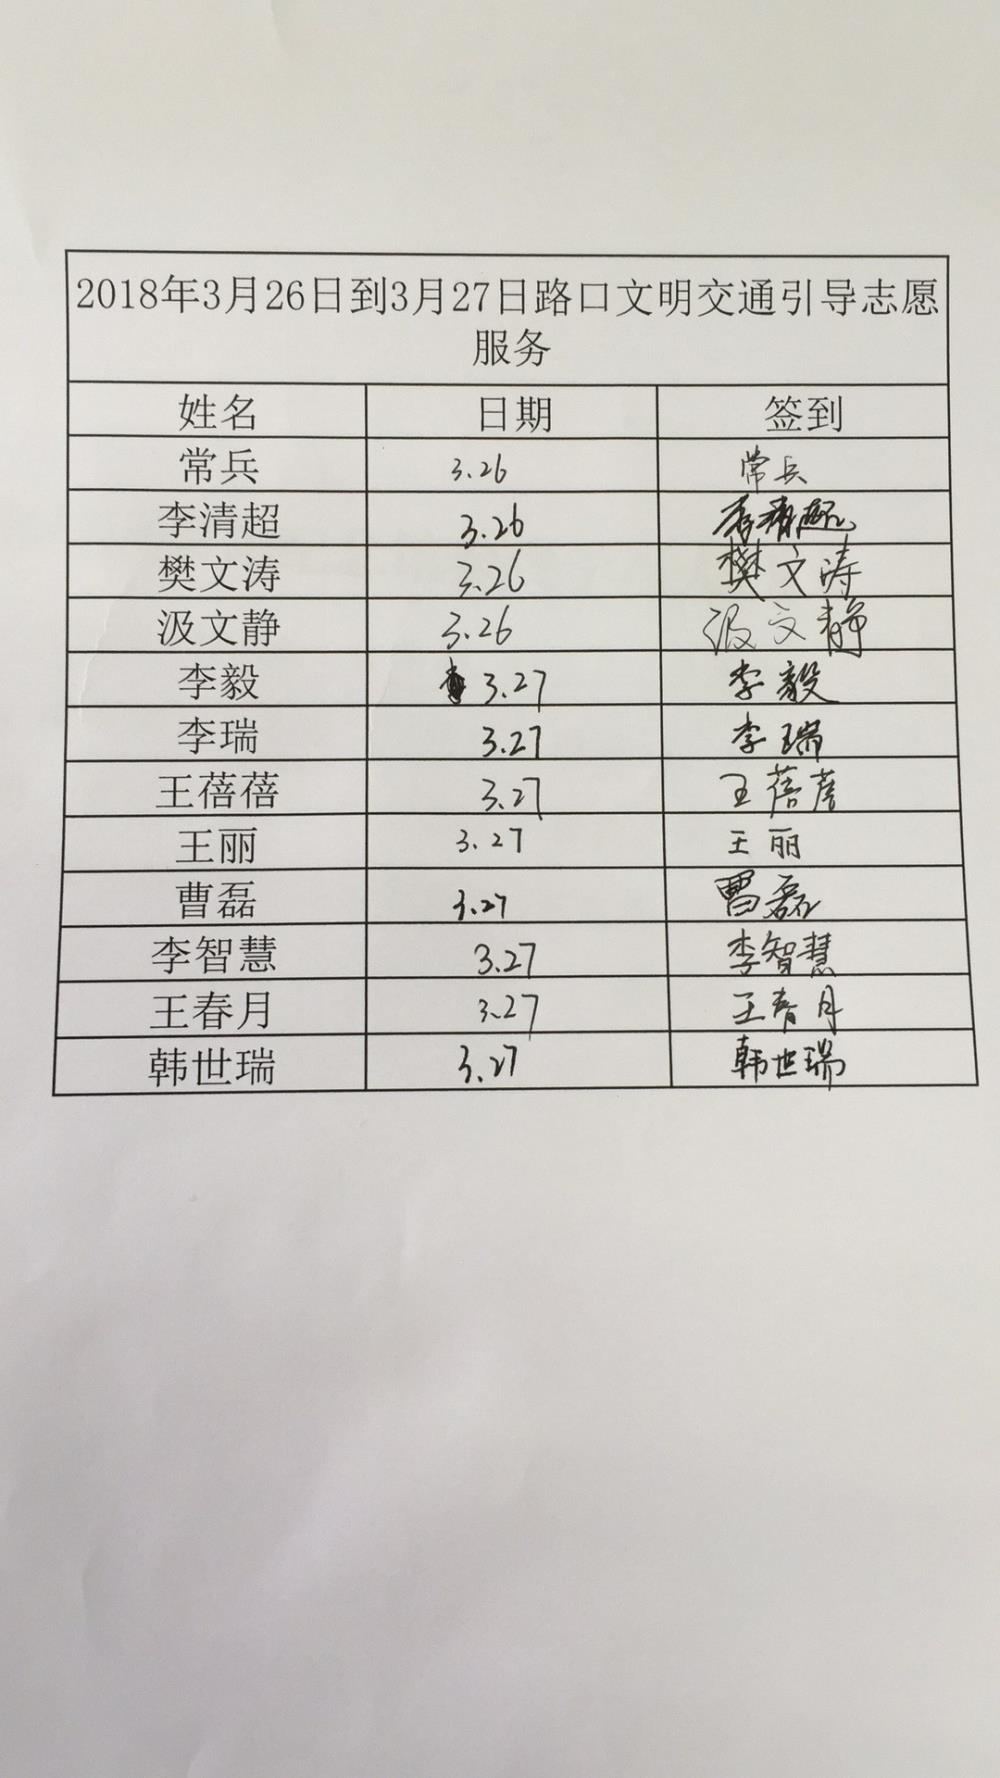 2018年3月26日到3月27日路口文明交通引导志愿
服务
姓名 日期 签到
常兵 3.26 常兵
李清超 3.26 李清超
樊文涛 3.26 樊文涛
汲文静 3.26 汲文静
李毅 3.27 李毅
李瑞 3.27 李瑞
王蓓蓓 3.27 王蓓蓓
王丽 3.27 王丽
曹磊 3.27 曹磊
李智慧 3.27 李智慧
王春月 3.27 王春月
韩世瑞 3.27 韩世瑞